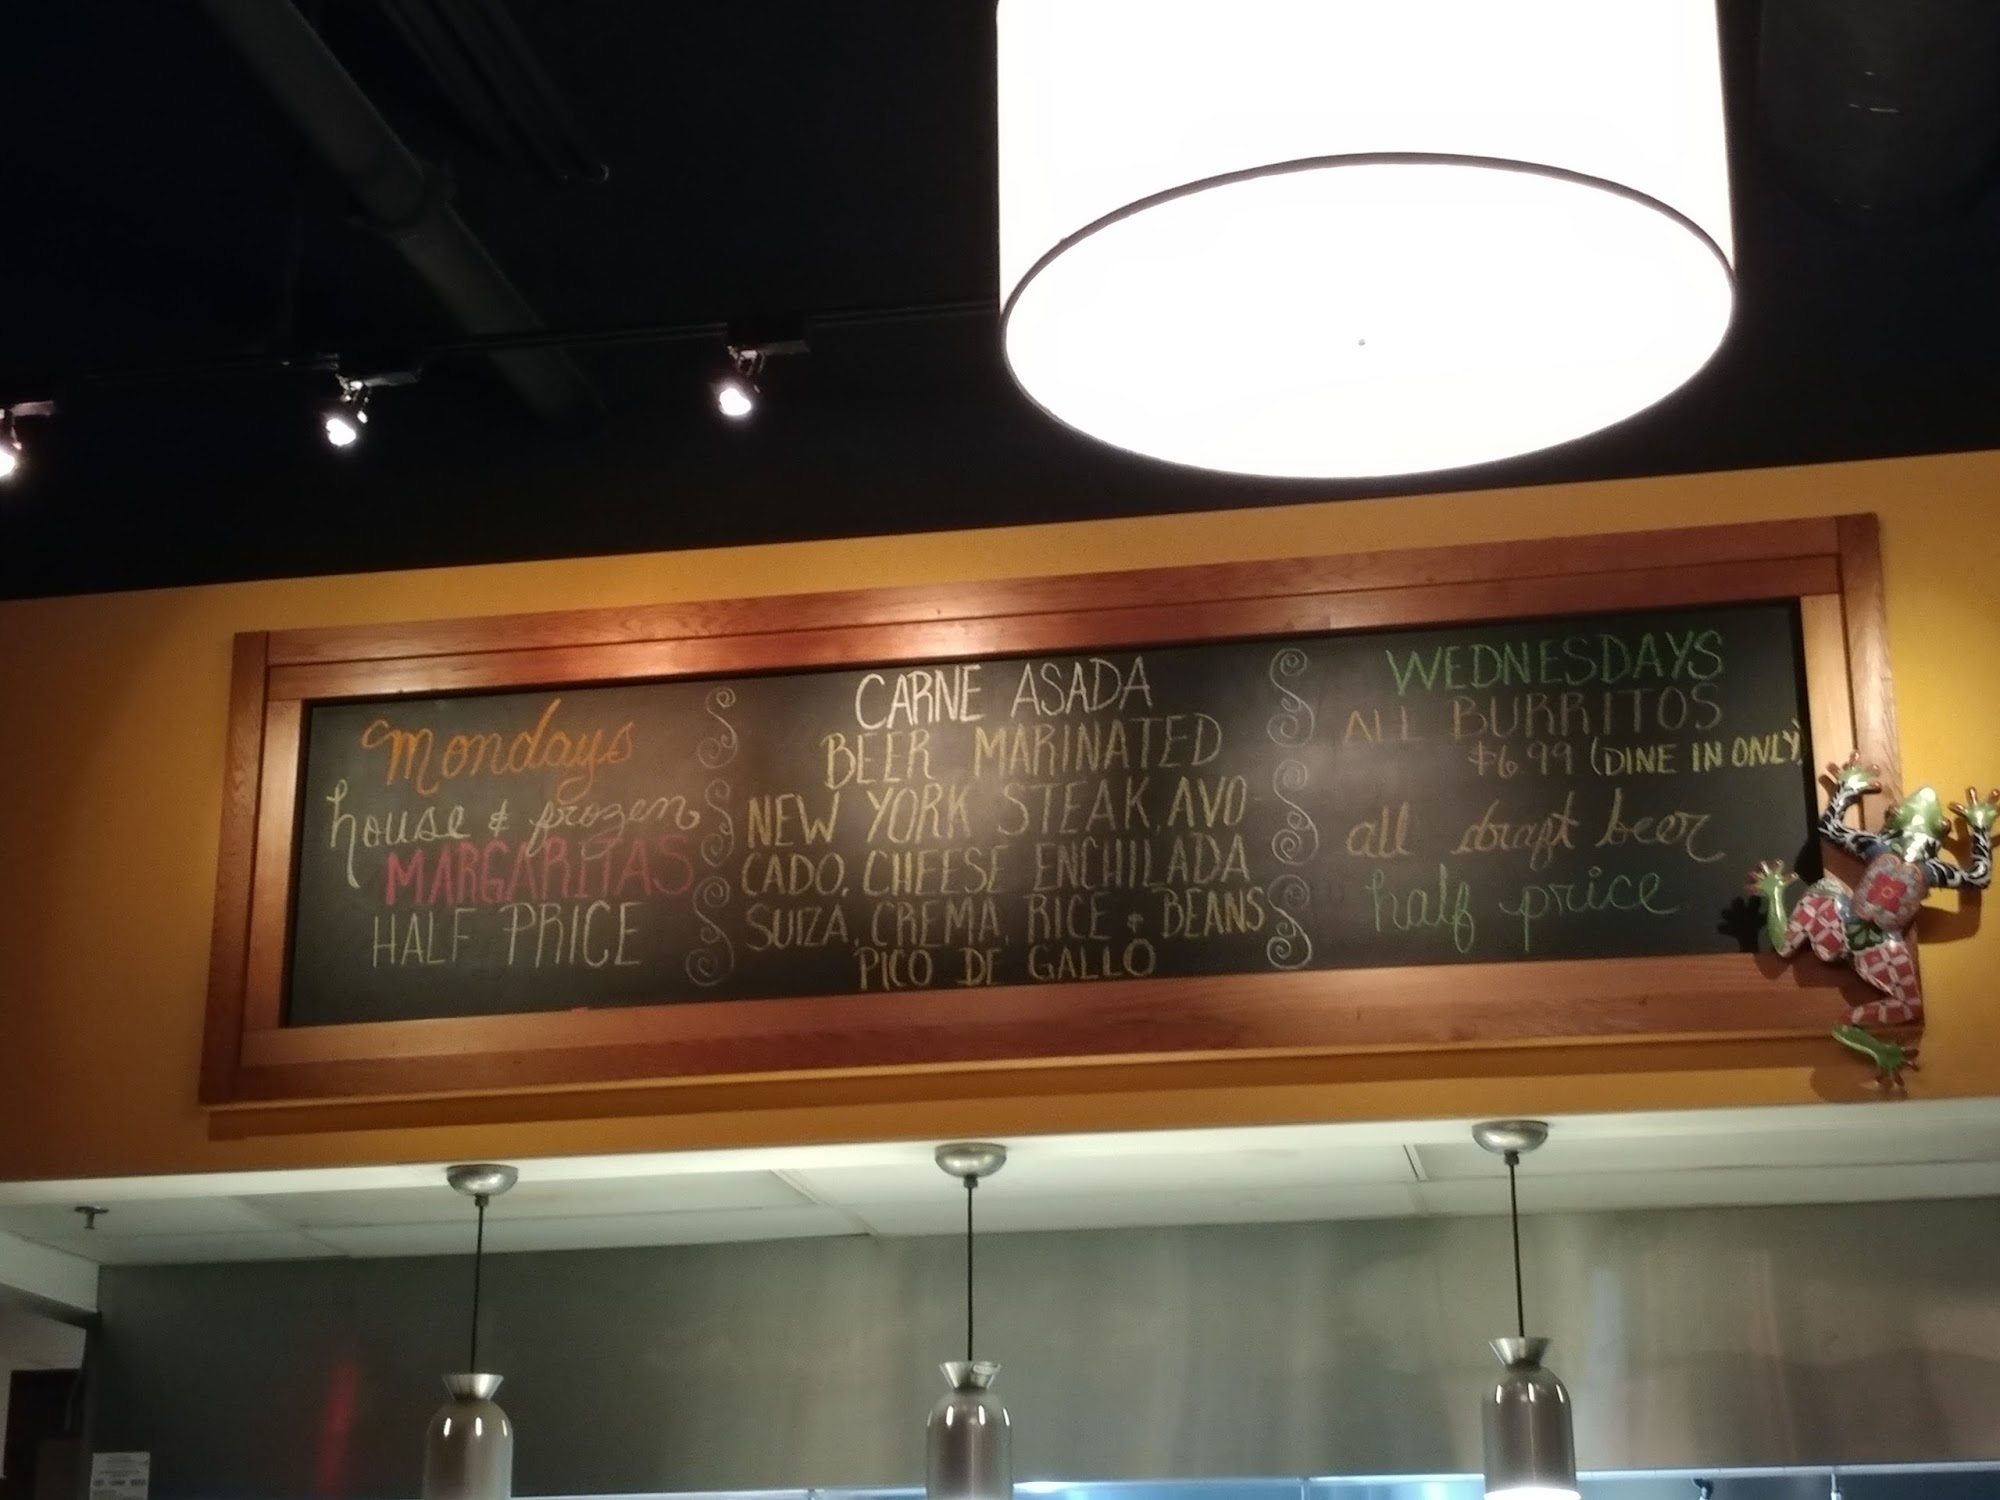 Mondays
house & frozen
MARGARITAS
HALF PRICE
CARNE ASADA
BEER MARINATED
NEW YORK STEAK, AVO
CADO, CHEESE ENCHILADA
SUIZA, CREMA, RICE & BEANS
PICO DE GALLO
WEDNESDAYS
ALL BURRITOS
$6.99 (DINE IN ONLY)
all draft beer
half price